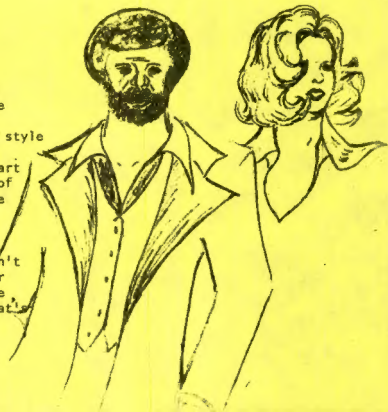 e
style
art
of
e
n't
r
e
at's